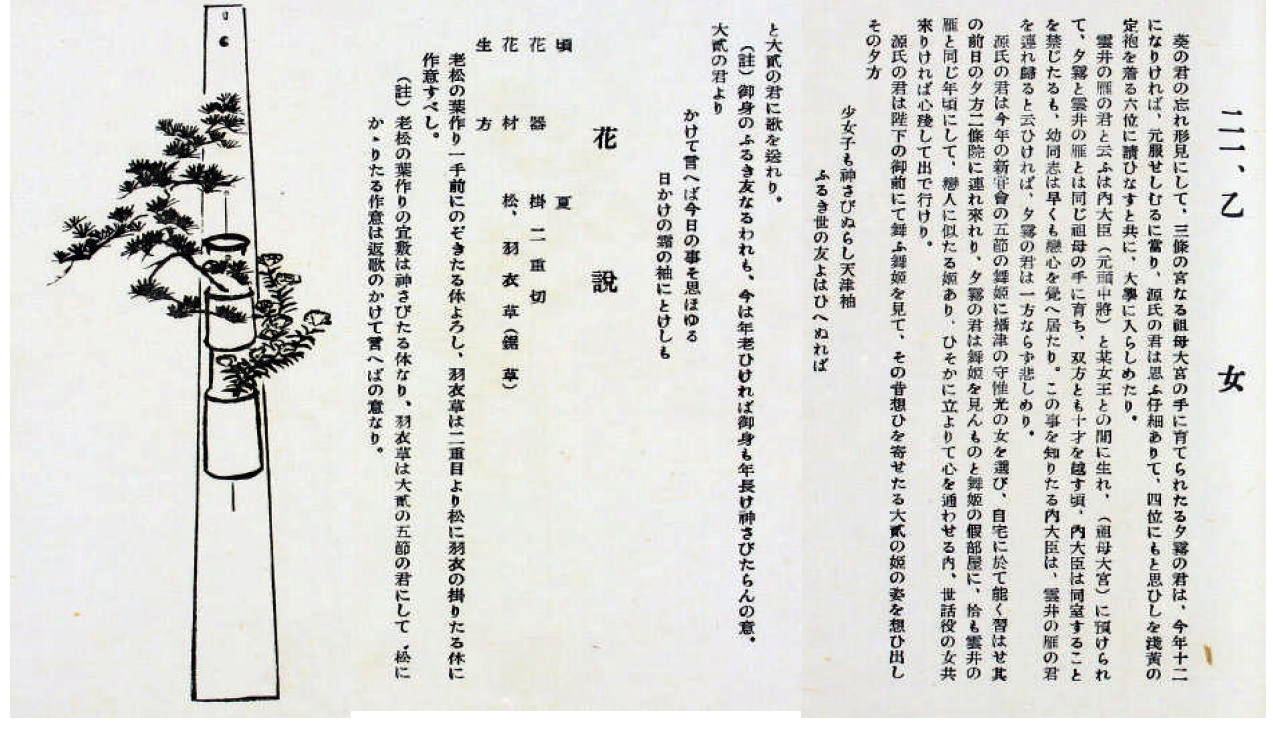 二一、乙女
葵の君の忘れ形見にして、三條の宮なる祖母大宮の手に育てられたる夕霧の君は、今年十二
になりければ、元服せしむるに當り、源氏の君は思ふ仔細ありて、四位にもと思ひしを淺黄の
定袍を着る六位に請ひなすと共に、大學に入らしめたり。
雲井の雁の君と云ふは内大臣（元頭中將）と某女王との間に生れ、（祖母大宮）に預けられ
て、夕霧と雲井の雁とは同じ祖母の手に育ち、双方とも十才を越す頃、内大臣は同室すること
を禁じたるも、幼同志は早くも戀心を覺へ居たり。この事を知りたる内大臣は、雲井の雁の君
を連れ歸ると云ひければ、夕霧の君は一方ならず悲しめり。
源氏の君は今年の新甞會の五節の舞姫に攝津の守惟光の女を選び、自宅に於て能く習はせ其
の前日の夕方二條院に連れ來れり、夕霧の君は舞姫を見んものと舞姫の假部屋に、恰も雲井の
雁と同じ年頃にして、戀人に似たる姫あり、ひそかに立よりて心を通わせる内、世話役の女共
來りければ心殘して出で行けり。
源氏の君は陛下の御前にて舞ふ舞姫を見て、その昔想ひを寄せたる大貳の姫の姿を想ひ出し
その夕方
少女子も神さびぬらし天津袖
ふるき世の友よはひへぬれば
と大貳の君に歌を送れり。
（註）御身のふるき友なるわれも、今は年老ひければ御身も年長け神さびたらんの意。
大貳の君より
かけて言へば今日の事そ思ほゆる
日かけの霜の袖にとけしも
花説
頃　夏
花器　掛二重切
花材　松、羽衣草（鋸草）
生方
老松の葉作り一手前にのぞきたる体よろし、羽衣草は二重目より松に羽衣の掛りたる休に
作意すべし。
（註）老松の葉作りの宜敷は神さびたる体なり、羽衣草は大貳の五節の君にして、松に
かゝりたる作意は返歌のかけて言へばの意なり。